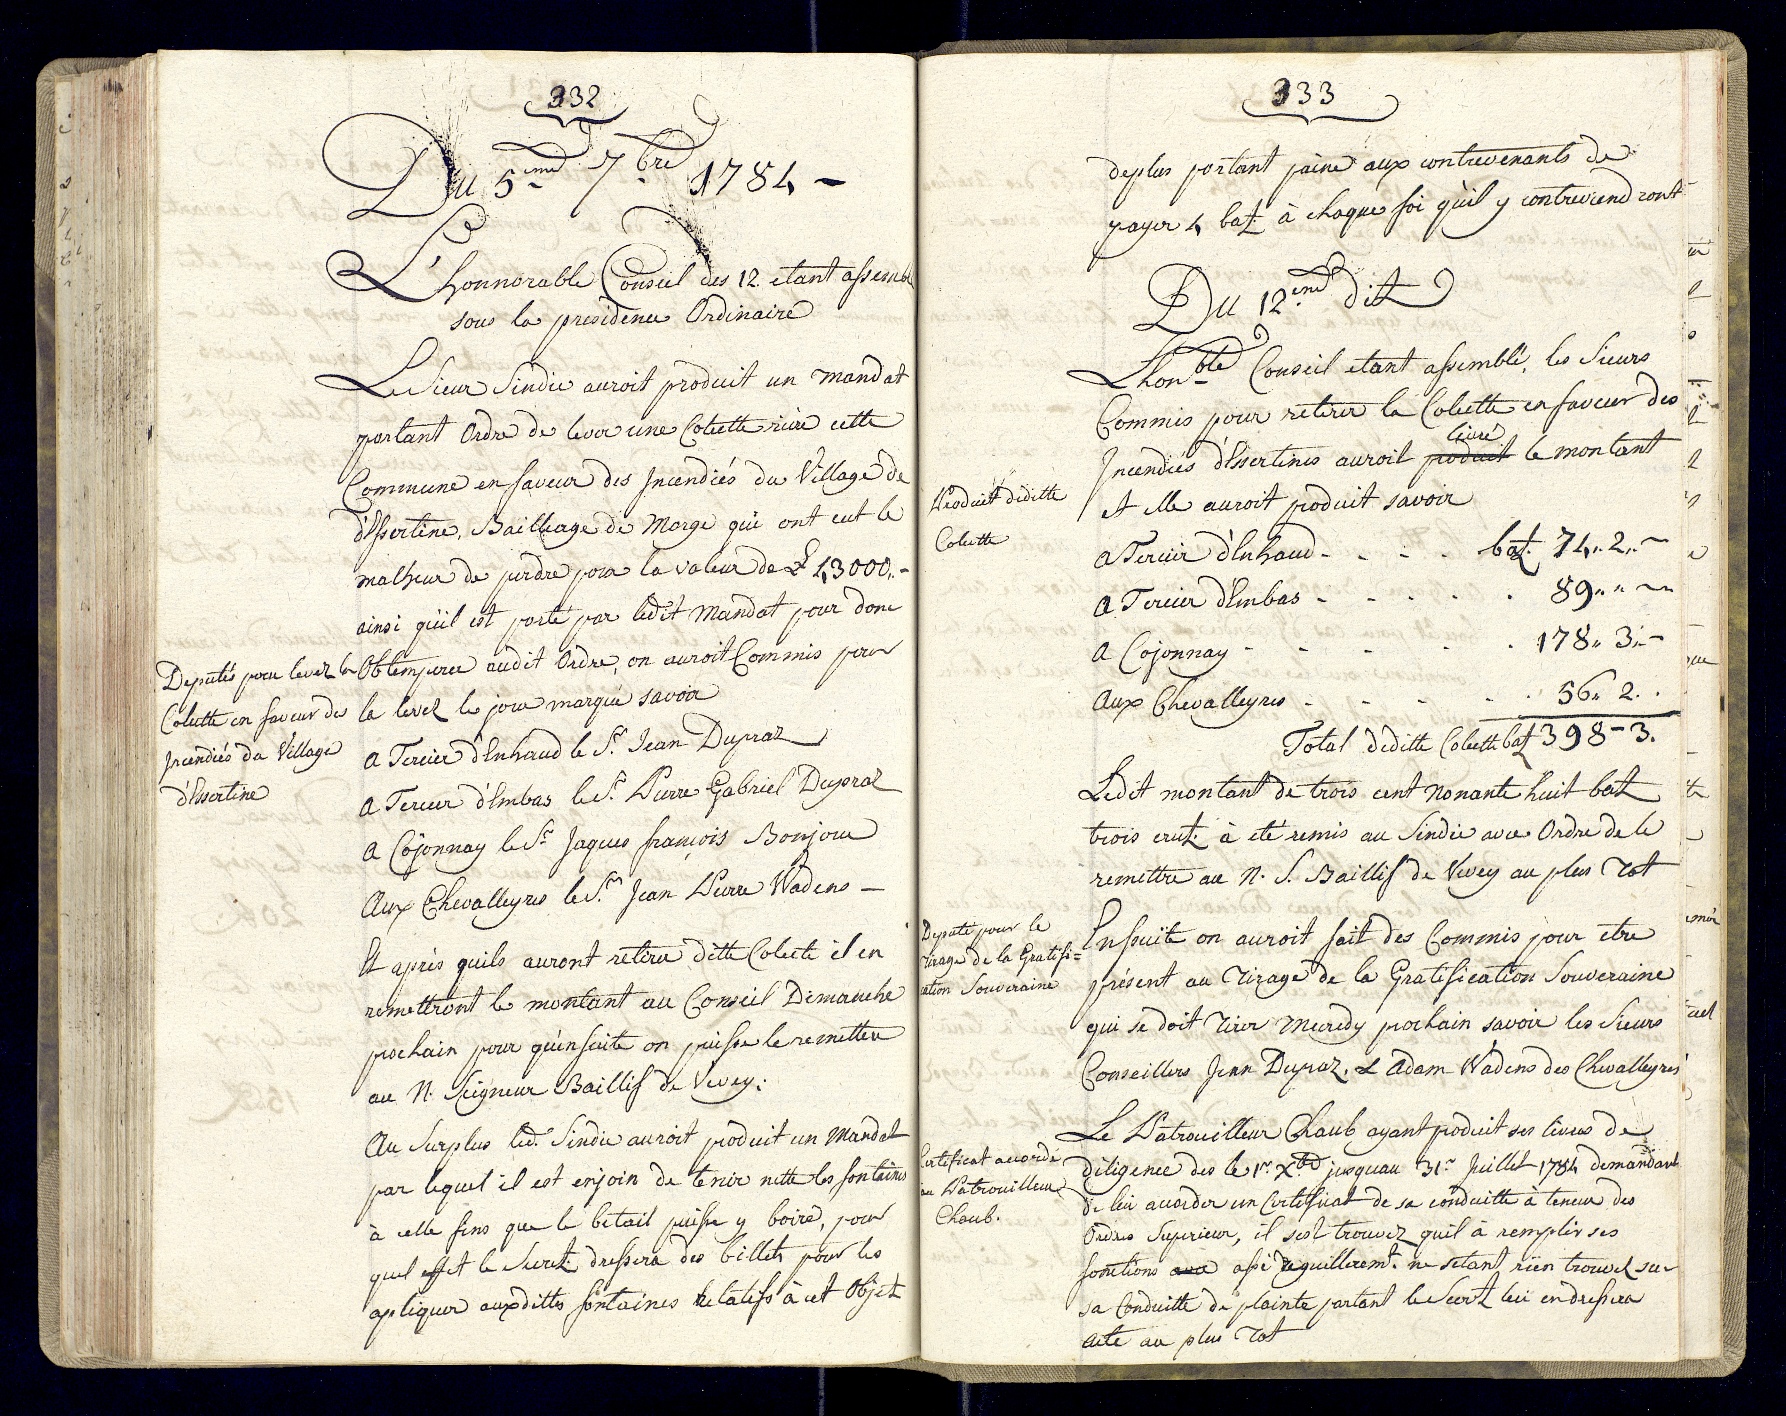 332
Du 5.me 7.bre 1784 –
L'honnorable Conseil des 12 etant assemblé
sous la presidence Ordinaire
Le Sieur Sindic auroit produit un Mandat
portant Ordre de lever une Colecte riere cette
Commune en faveur des Incendiés du Village de
d'Essertine, Bailliage de Morge qui ont eut le
malheur de perdre pour la valeur de £ 43000.-
ainsi qu'il est porté par ledit Mandat pour donc
Deputés pour lever la
Colecte en faveur des
Incendiés du Village
d'Essertine
Obtemperer audit Ordre, on auroit Commis pour
la lever le jour marqué savoir
a Tercier d'Enhaud le S.r Jean Dupraz
a Tercier d'Embas le S.r Pierre Gabriel Dupraz
a Cojonnay le S.r Jaques françois Bonjour
aux Chevalleyres le S.r Jean Pierre Wadens –
Et après quils auront retiré ditte Colecte il en
remettront le montant au Conseil Dimanche
prochain pour qu'ensuite on puisse le remettre
au N. Seigneur Baillif de Vevey.
Au Surplus led.t Sindic auroit produit un Mandat
par lequel il est enjoin de tenir nette les fontaines
à celle fins que le betail puisse y boire, pour
quel effet le Secret. dressera des billets pour les
apliquer auxdittes fontaines relatifs à cet Objet
333
deplus portant paine aux contrevenants de
payer 4 batz à chaque foi qu'il y contreviendront
Du 12.eme dit
L'hon.ble Conseil etant assemblé, les Sieurs
Commis pour retirer la Colecte en faveur des
Incendiés d'Essertines auroit produit livré le montant
Produit de ditte
Colecte
et Elle auroit produit savoir
a Tercier d'Enhaud - - - - batz 74 " 2 " -
a Tercier d'Embas - - - - - 89 " " -
a Cojonnay - - - - - 178 " 3 " -
aux Chevalleyres - - - - - 56 " 2 . .
Total de ditte Colecte batz 398 – 3.
Ledit montant de trois cent nonante huit batz
trois crutz. à eté remis au Sindic avec Ordre de le
remettre au N. S. Baillif de Vevey au plus Tot
Deputé pour le
Tirage de la Gratifi=
cation Souveraine
Ensuite on auroit fait des Commis pour etre
présent au Tirage de la Gratification Souveraine
qui se doit Tirer Mecredy prochain savoir les Sieurs
Conseillers Jean Dupraz, & Adam Wadens des Chevalleyres
Certificat accordé
au Patrouilleur
Chaub.
Le Patrouilleur Chaub ayant produit ses livres de
diligence des le 1.r X.bre jusquau 31.r Juillet 1784 demandant
de lui accorder un Certificat de sa conduitte à teneur des
Ordres Superieur, il s'est trouvez quil à remplir ses
fonctions avec assé reguillierem.t ne s'etant rien trouvé sur
sa Conduitte de plainte partant le Secrt. lui en dressera
acte au plus Tot